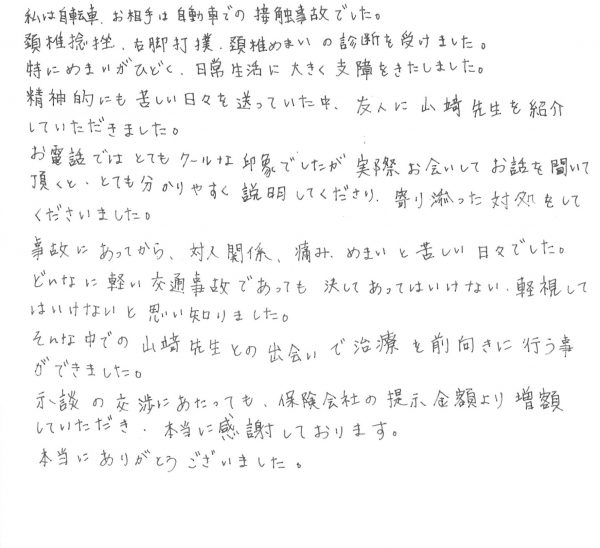 私は自転車、お相手は自動車での接触事故でした。
頚椎捻挫、右脚打撲、頚椎めまいの診断を受けました。
特にめまいがひどく、日常生活に大きく支障をきたしました。
精神的にも苦しい日々を送っていた中、友人に山﨑先生を紹介
していただきました。
お電話ではとてもクールな印象でしたが実際お会いしてお話を聞いて
頂くと、とても分かりやすく説明してくださり、寄り添った対処をして
くださいました。
事故にあってから、対人関係、痛み、めまいと苦しい日々でした。
どんなに軽い交通事故であっても決してあってはいけない、軽視して
はいけないと思い知りました。
そんな中での山﨑先生との出会いで治療を前向きに行う事
ができました。
示談の交渉にあたっても、保険会社の提示金額より増額
していただき、本当に感謝しております。
本当にありがとうございました。